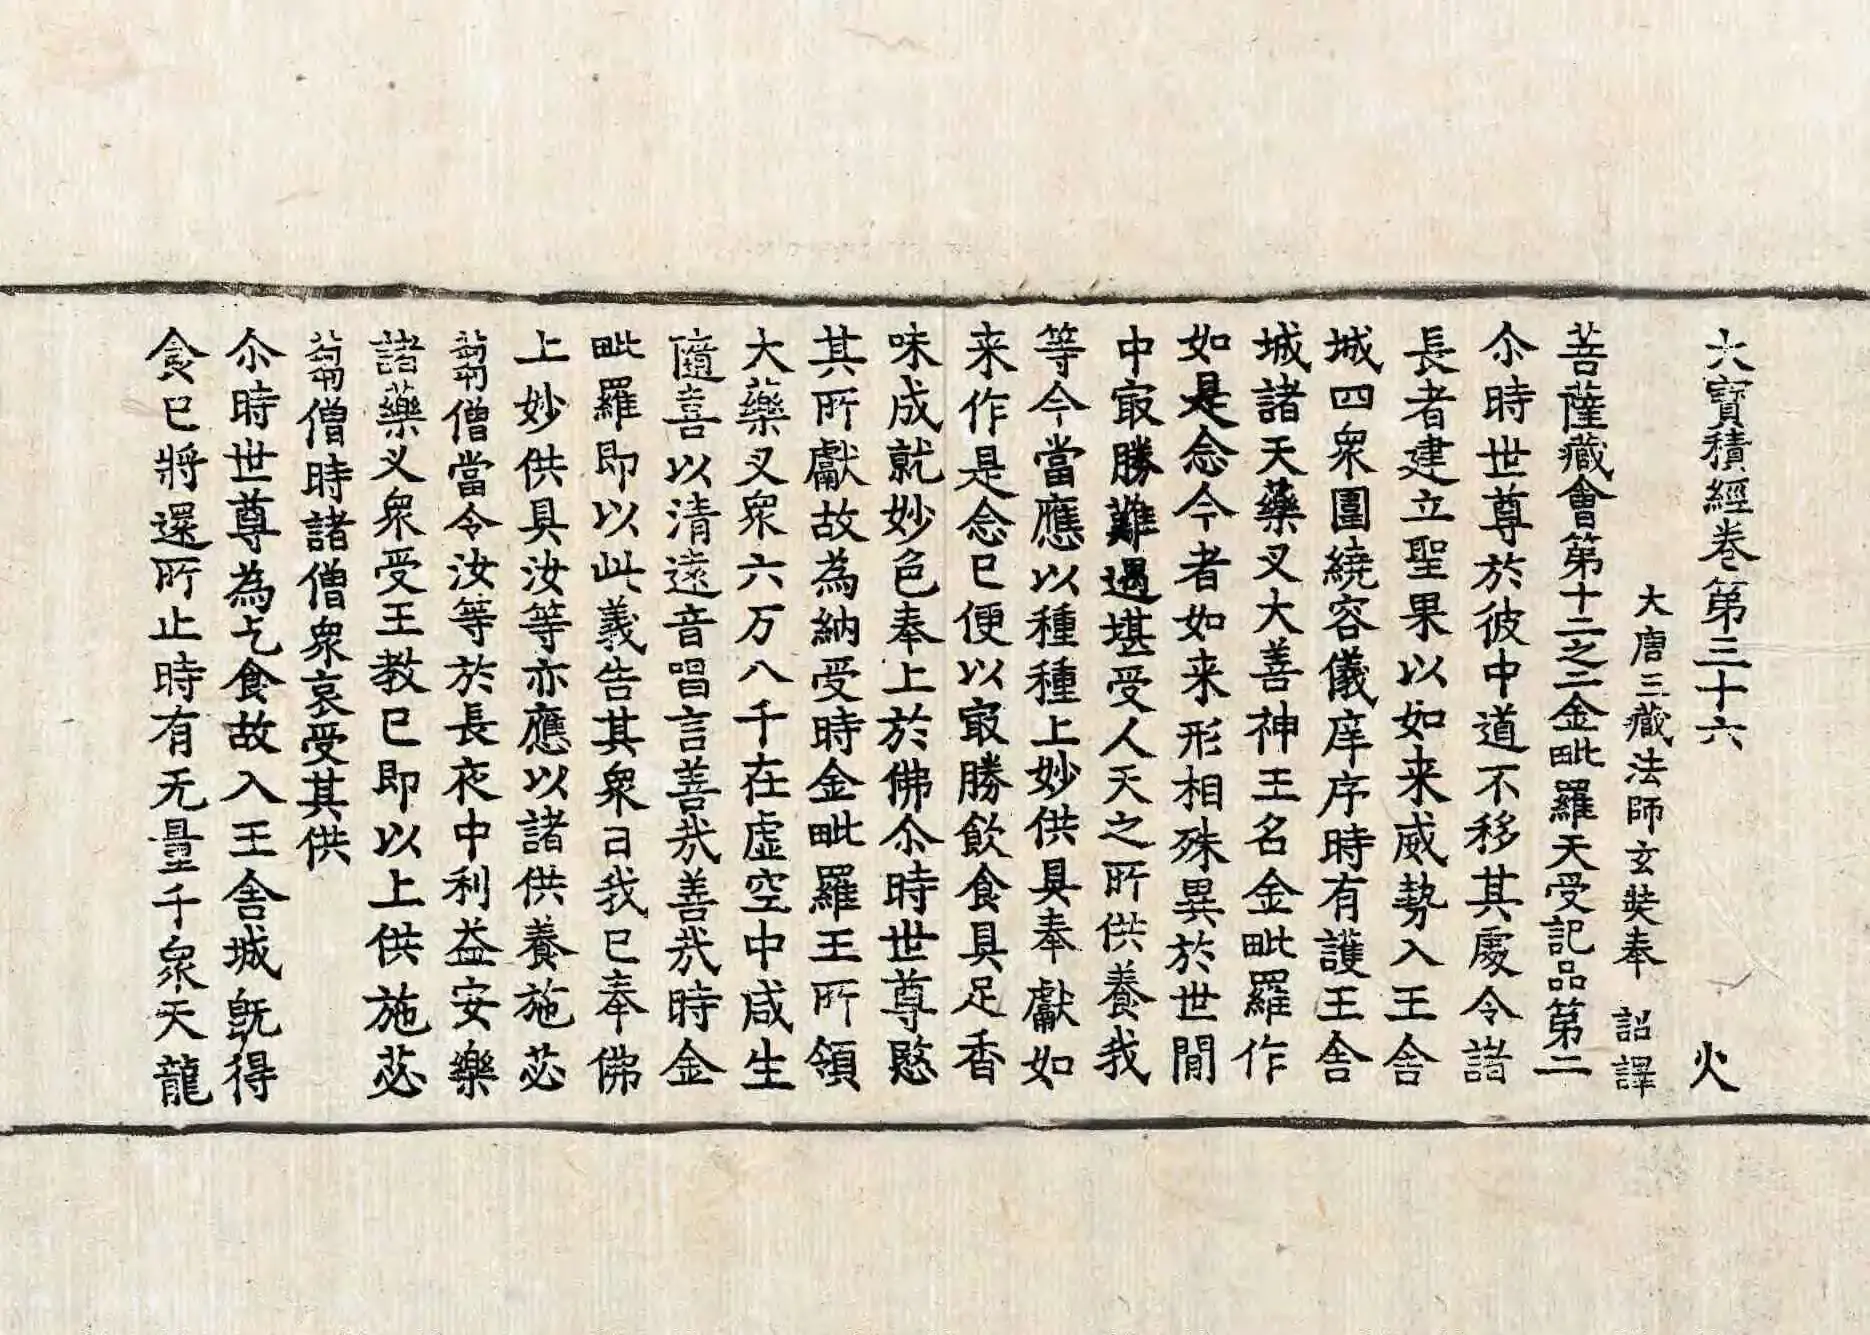 大寶積經卷第三十六 火
大唐三藏法師玄奘奉 詔譯
菩薩藏會第十二之二金毗羅天受記品第二
尒時世尊於彼中道不移其處令諸
長者建立聖果以如来威勢入王舍
城四衆圍繞容儀庠序時有護王舍
城諸天藥叉大善神王名金毗羅作
如是念今者如来形相殊異於世間
中㝡勝難遇堪受人天之所供養我
等今當應以種種上妙供具奉獻如
来作是念已便以㝡勝飲食具足香
味成就妙色奉上於佛尒時世尊愍
其所獻故為納受時金毗羅王所領
大藥叉衆六万八千在虚空中咸生
隨喜以清遠音唱言善哉善哉時金
毗羅即以此義告其衆曰我已奉佛
上妙供具汝等亦應以諸供養施苾
蒭僧當令汝等於長夜中利益安樂
諸藥叉衆受王教已即以上供施苾
蒭僧時諸僧衆哀受其供
尒時世尊為乞食故入王舍城既得
食已將還所止時有无量千衆天龍